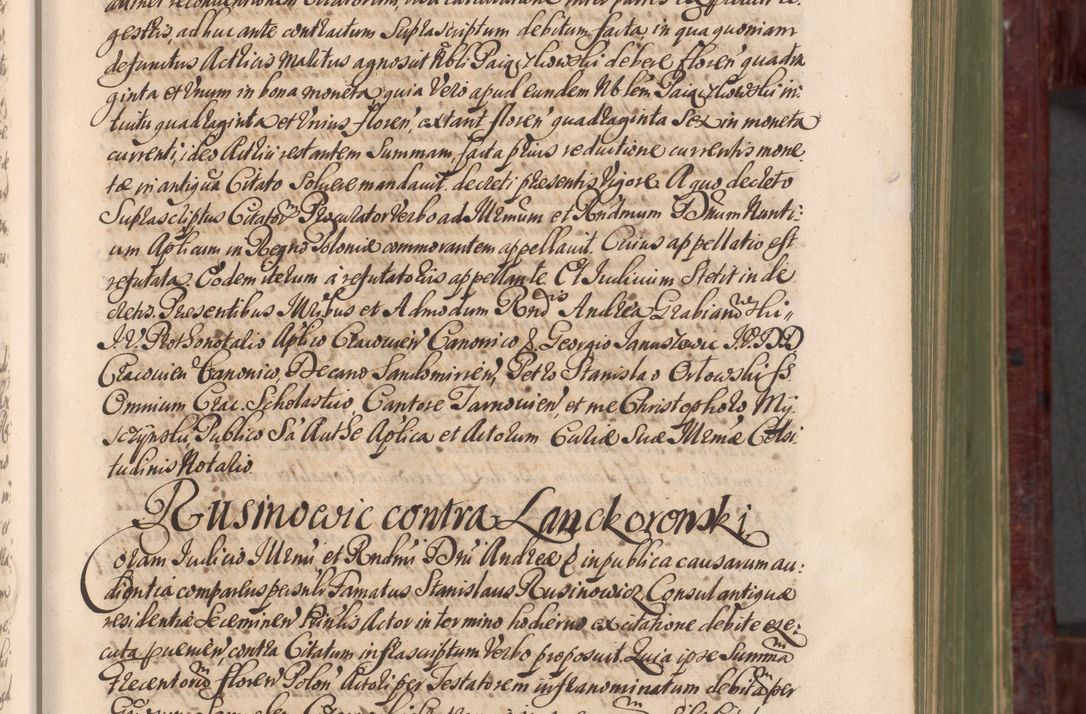 gestris, adhuc ante contractum suprascriptum debitum facta, in qua quoniam
defunctus Actricis Maritus agnosuit Nobli Paig debere floren' quadra
ginta et Unum in bona moneta, quia Vero apud eundem Nblem in
tuitu quadraginta et Unius floren', extant floren' quadraginta Sex in moneta
currenti, ideo Actrici restantem Summam, facta prius reductione currentis mone
tæ in antiquã Citato Soluere mandauit, decreti præsentis Vigore. A quo decreto
Suprascriptus Citator Procurator Verbo ad Illrmum et Rndmum Dnum Nunti:
um Aplicum in Regno Poloniæ commorantem appellauit. Cuius appellatio est
refutata. Eodem iterum à refutatoriis appellante. Et Iudicium Stetit in de
cretis. Præsentibus Illribus et Admodum Rndis Andrea Grabianowski
I.V. Prothonotario Aplico Cracouien' Canonico & Georgio Januszewic I.V.D.D
Cracouien' Canonico, Decano Sandomirien', Petro Stanislao Orlowski SS.
Omnium Crac. Scholastico, Cantore Tarnouien', et me Christophoro My
szynski Publico Sa Autħe Aplica et Actorum Curiæ Suæ Illrmæ Celsi
tudinis Notario
Rusinowic contra Lanckoronski.
Coram Iudicio Illrmi et Rndmi Dni Andreæ & in publica causarum au:
dientia comparens persnli Famatus Stanislaus Rusinowicz Consul antiquæ
residentiæ Leciminen' Prinlis Actor in termino hodierno ex citatione debite exe
cuta proueñ, contra Citatum infrascriptum Verbo proposuit. Quia ipse Summã
Trecentorũ floren' Polon' Actori per Testatorem infranominatum debitã per